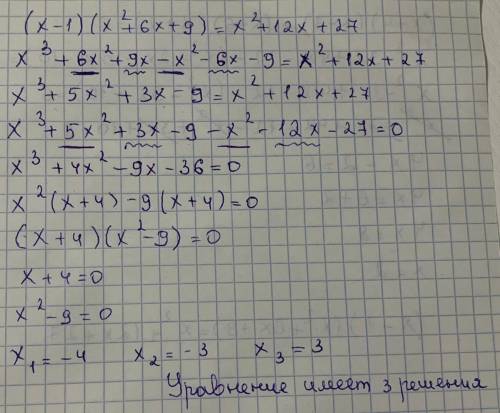 (x-1)(x²+6x+9) = x²+12x+27
x³+6x²+9x-x²-6x-9=x²+12x+27
x³+5x²+3x-9=x²+12x+27
x³+5x²+3x-9-x²-12x-27=0
x³+4x²-9x-36=0
x²(x+4)-9(x+4)=0
(x+4)(x²-9)=0
x+4=0
x²-9=0
x₁=-4 x₂=-3 x₃=3
Уравнение имеет 3 решения